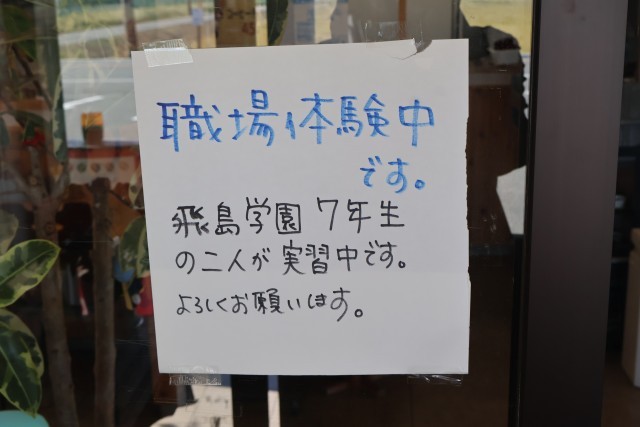 職場体験中
です。
飛島学園 7年生
の二人が実習中です。
よろしくお願いします。